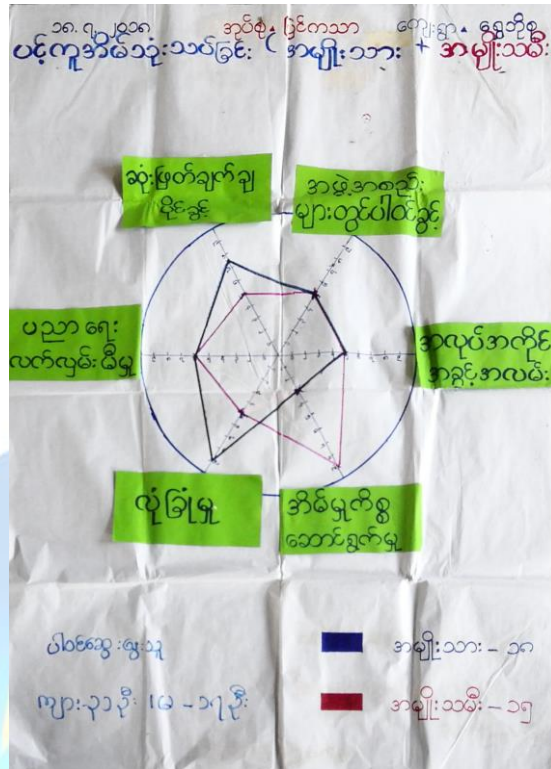 ၁၈. ၇. ၂၀၁၈ အုပ်စု - ခြင်ကသာ ကျေးရွာ - ရွှေဘိုစု
ပင့်ကူအိမ်သုံးသပ်ခြင်း ( အမျိုးသား + အမျိုးသမီး
ဆုံးဖြတ်ချက်ချ
နိုင်ခွင့်
အဖွဲ့အစည်း
များတွင်ပါဝင်ခွင့်
ပညာရေး
လက်လှမ်းမီမှု
အလုပ်အကိုင်
အခွင့်အလမ်း
လုံခြုံမှု
အိမ်မှုကိစ္စ
ဆောင်ရွက်မှု
ပါဝင်ဆွေးနွေးသူ
ကျား-၃၁ဦး ၊ မ - ၁၇ဦး
အမျိုးသား - ၁၈
အမျိုးသမီး - ၁၅